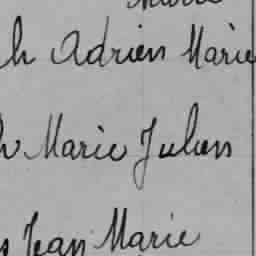 h Adrien Marie
Marie Julien
s Jean Marie